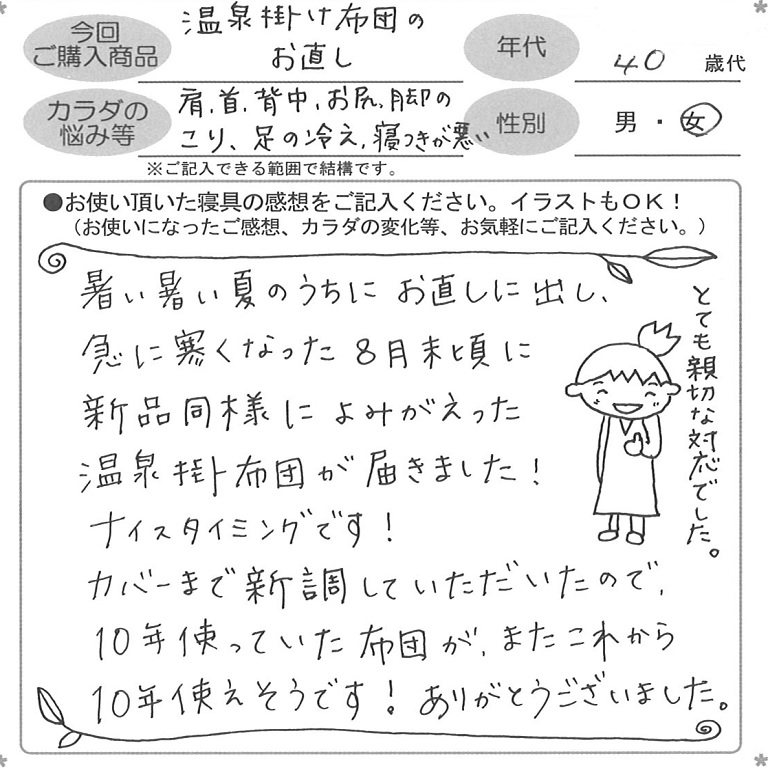 今回
ご購入商品
温泉掛け布団の
お直し
年代
40 歳代
カラダの
悩み等
肩、首、背中、お尻、脚の
こり、足の冷え、寝つきが悪い
性別
男・女
※ご記入できる範囲で結構です。
●お使い頂いた寝具の感想をご記入ください。イラストもOK！
（お使いになったご感想、カラダの変化等、お気軽にご記入ください。）
暑い暑い夏のうちにお直しに出し、
急に寒くなった8月末頃に
新品同様によみがえった
温泉掛布団が届きました！
ナイスタイミングです！
カバーまで新調していただいたので、
10年使っていた布団が、またこれから
10年使えそうです！ありがとうございました。
とても親切な対応でした。